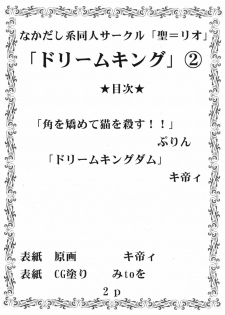 なかだし系同人サークル「聖=リオ」
「ドリームキング」②
★目次★
「角を矯めて猫を殺す!!」
ぷりん
「ドリームキングダム」
キ帝ィ
表紙 原画 キ帝ィ
表紙 CG塗り みtoを
2p